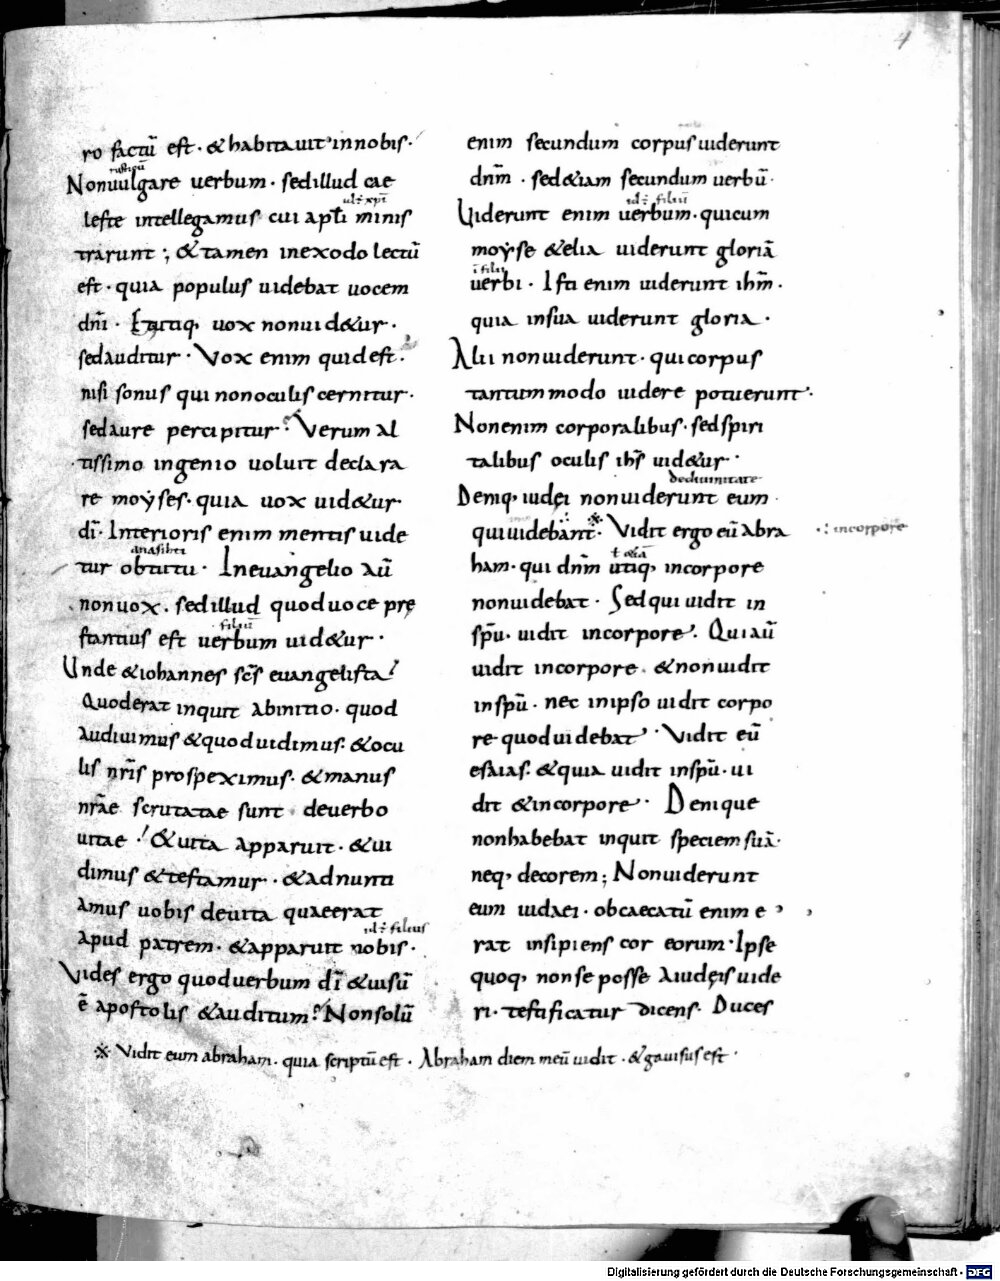 4
ro factū est · & habitauit in nobis ·
rusticū
Non uulgare uerbum · sed illud cae
leste intellegamus cui apl̄i minis
trarunt ; & tamen in exodo lectū
est · quia populus uidebat uocem
dn̄i · Et utiq, uox non uid&ur ·
sed auditur · Vox enim quid est ·
nisi sonus qui non oculis cernitur ·
sed aure percipitur · Verum al
tissimo ingenio uoluit declara
re moẏses · quia uox uid&ur ·
dī · Interioris enim mentis uide
tur obtutu · In euangelio aū
non uox · sed illud quod uoce prę
filiū
stantius est uerbum uid&ur ·
Unde & iohannes sc̄s euangelista
Quod erat inquit ab initio · quod
audiuimus & quod uidimus · & ocu
lis nr̄is prospeximus · & manus
nr̄ae scrutatae sunt · de uerbo
uitae ! & uita apparuit · & ui
dimus & testamur · & adnunti
amus uobis de uita quae erat
filius
apud patrem · & apparuit nobis ·
Vides ergo quod uerbum dī & uisū
ē apostolis & auditum ? Non solū
enim secundum corpus uiderunt
dn̄m · sed &iam secundum uerbū ·
filiū
Uiderunt enim uerbum · qui cum
moẏse & elia uiderunt gloriā
uerbi · Isti enim uiderunt ih̄m ·
quia in sua uiderunt gloria ·
Alii non uiderunt · qui corpus
tantummodo uidere potuerunt ·
Non enim corporalibus · sed spiri
talibus oculis ih̄s uid&ur ·
de diuinitate
Deniq, iudęi non uiderunt eum
qui uidebant · ※ Vidit ergo eū abra
·:· in corpore
ham · qui dn̄m utiq, in corpore
non uidebat · Sed qui uidit in
sp̄u · uidit in corpore · Qui aū
uidit in corpore · & non uidit
in sp̄u · nec in ipso uidit corpo
re quod uidebat · Vidit eū
esaias · & quia uidit in sp̄u · ui
dit & in corpore · Denique
non habebat inquit speciem suā ·
neq, decorem ; Non uiderunt
eum iudaei · obcaecatū enim e
rat insipiens cor eorum · Ipse
quoq, non se posse a iudęis uide
ri · testificatur dicens · Duces
※ Vidit eum abraham · quia scriptū est · Abraham diem meū uidit · & gauisus est ·
Digitalisierung gefördert durch die Deutsche Forschungsgemeinschaft - DFG